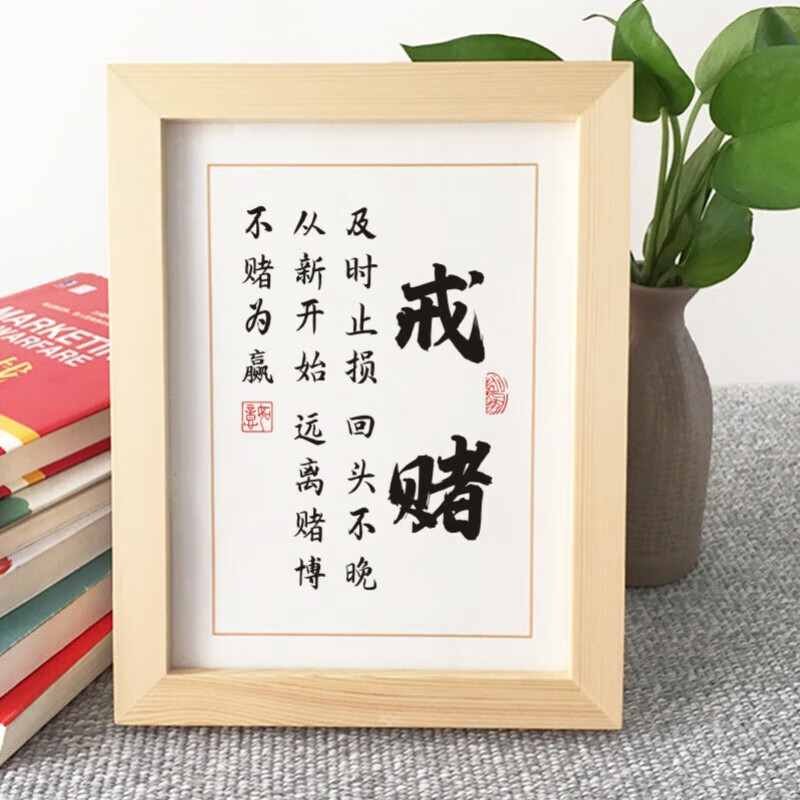 戒赌
及时止损 回头不晚
从新开始 远离赌博
不赌为赢
如意
MARKETIN
WARFARE